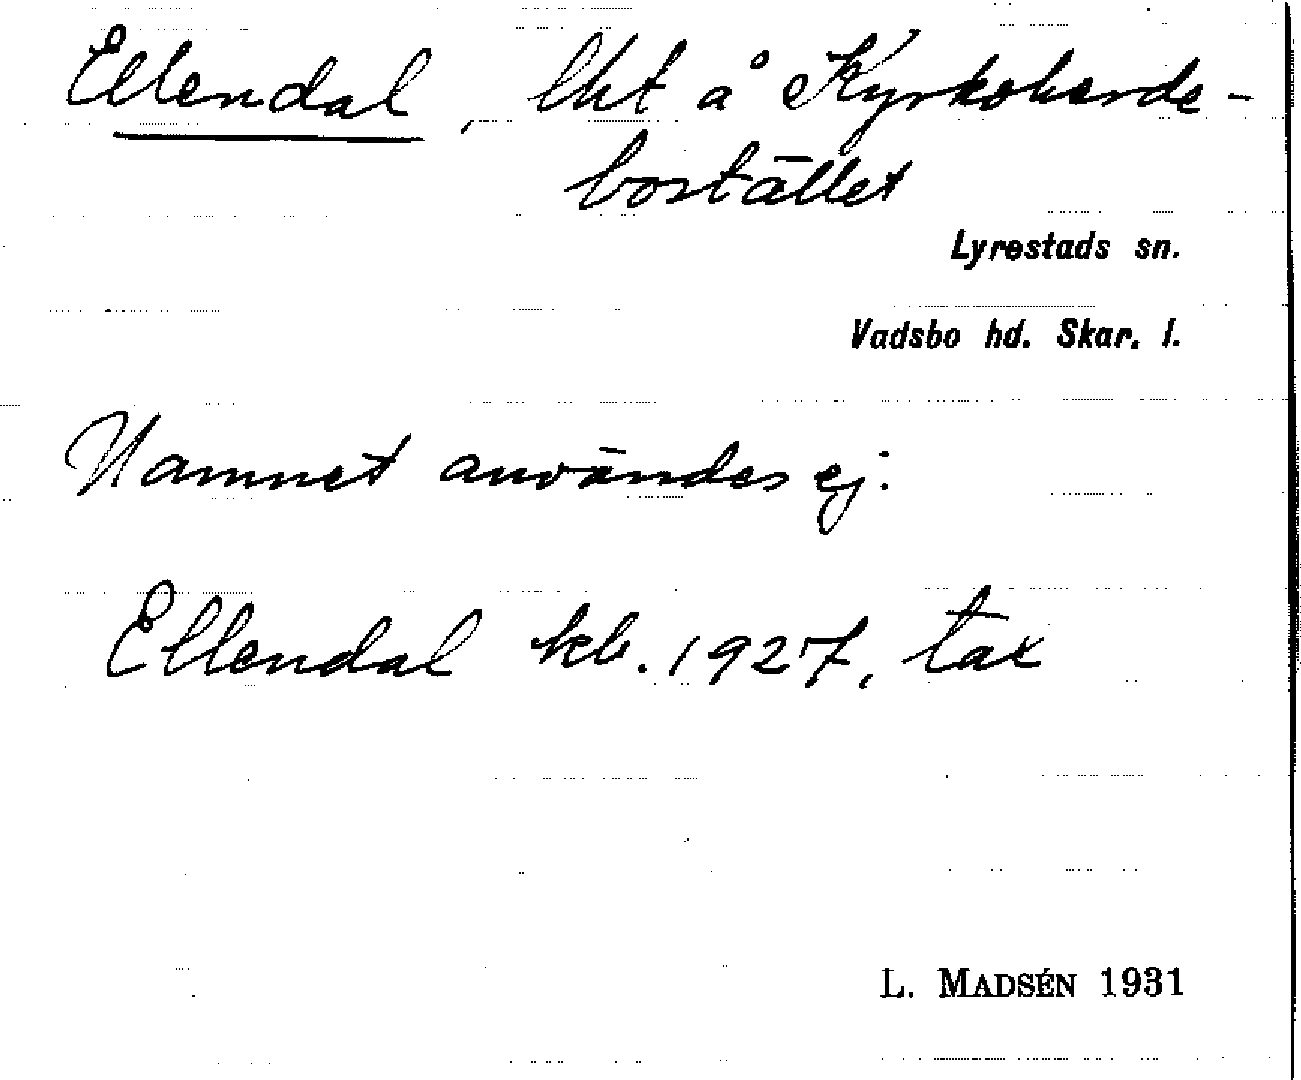 Ellendal, lht å Kyrkoherde-
bostället
Lyrestads sn.
Vadsbo hd. Skar. l.
Namnet användes ej.
Ellendal kb. 1927, tax
L. MADSÉN 1931